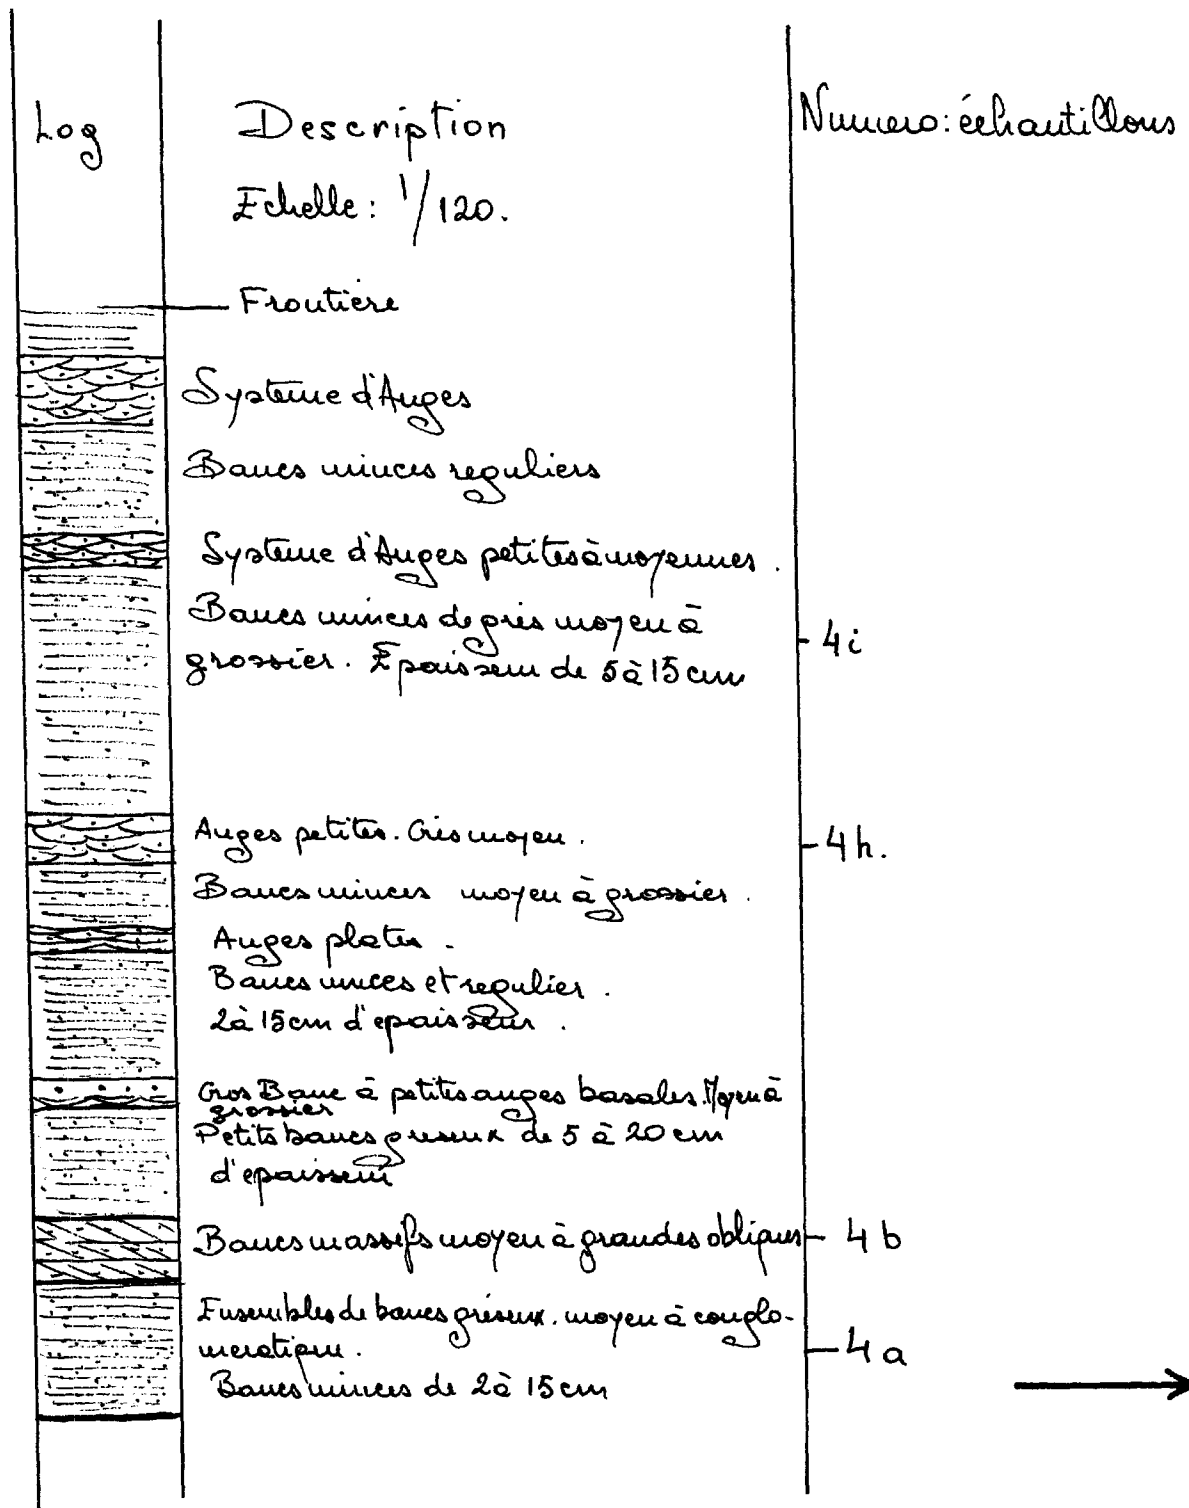 Log
Description
Numero: échantillons
Echelle: 1/120.
Frontiere
Systeme d'Auges
Bancs minces reguliers
Systeme d'Auges petites à moyennes.
Bancs minces de grès moyen à
grossier. Epaisseur de 5 à 15 cm
4i
Auges petites. Grès moyen.
4h.
Bancs minces moyen à grossier.
Auges plates.
Bancs minces et regulier.
2 à 15cm d'epaisseur.
Gros Banc à petites auges basales. Moyen à
grossier
Petits bancs greseux de 5 à 20 cm
d'epaisseur
Bancs massifs moyen à grandes obliques
4b
Ensembles de bancs gréseux. moyen à conglo-
meratique.
4a
Bancs minces de 2 à 15 cm